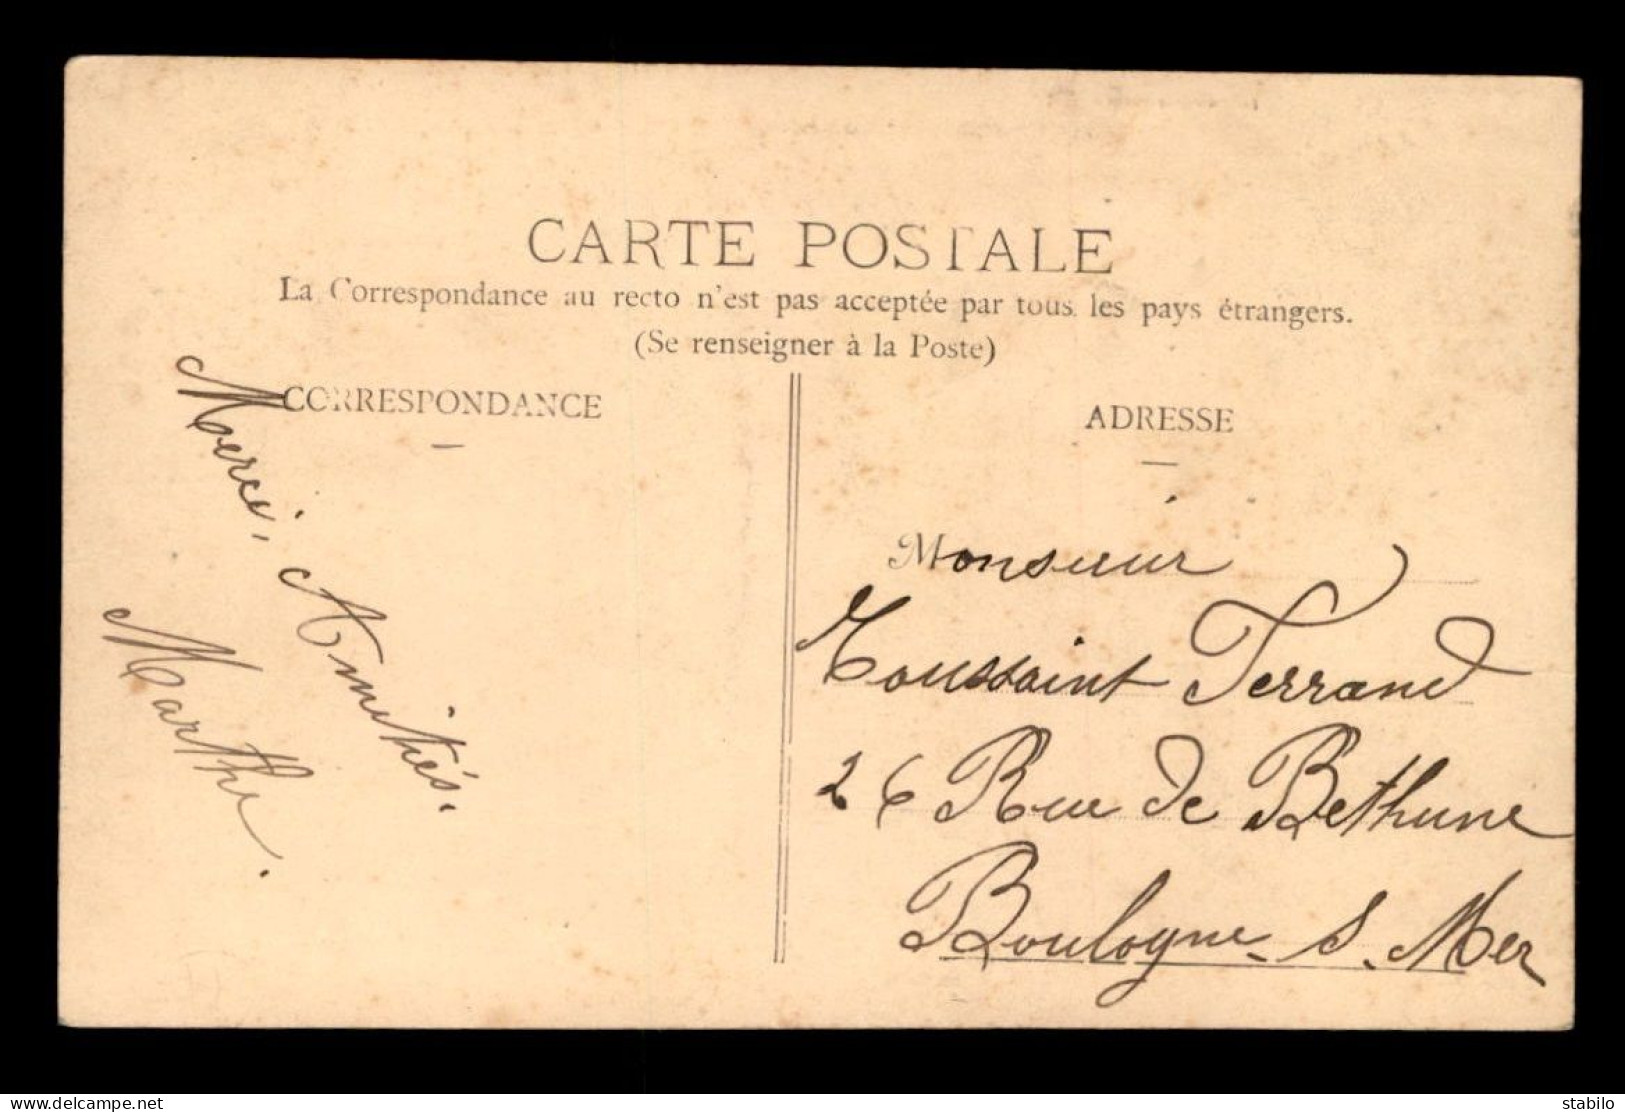 CARTE POSTALE
La Correspondance au recto n'est pas acceptée par tous les pays étrangers.
(Se renseigner à la Poste)
CORRESPONDANCE
Merci, Amitiés.
Marthe.
ADRESSE
Monsieur
Toussaint Ferrand
26 Rue de Bethune
Boulogne s. Mer
delcampe.net
stabilo